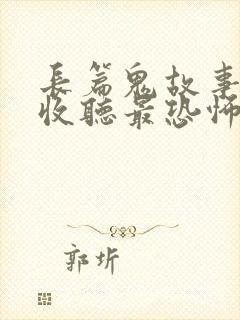 長篇鬼故事
收聽最恐怖
郭圻